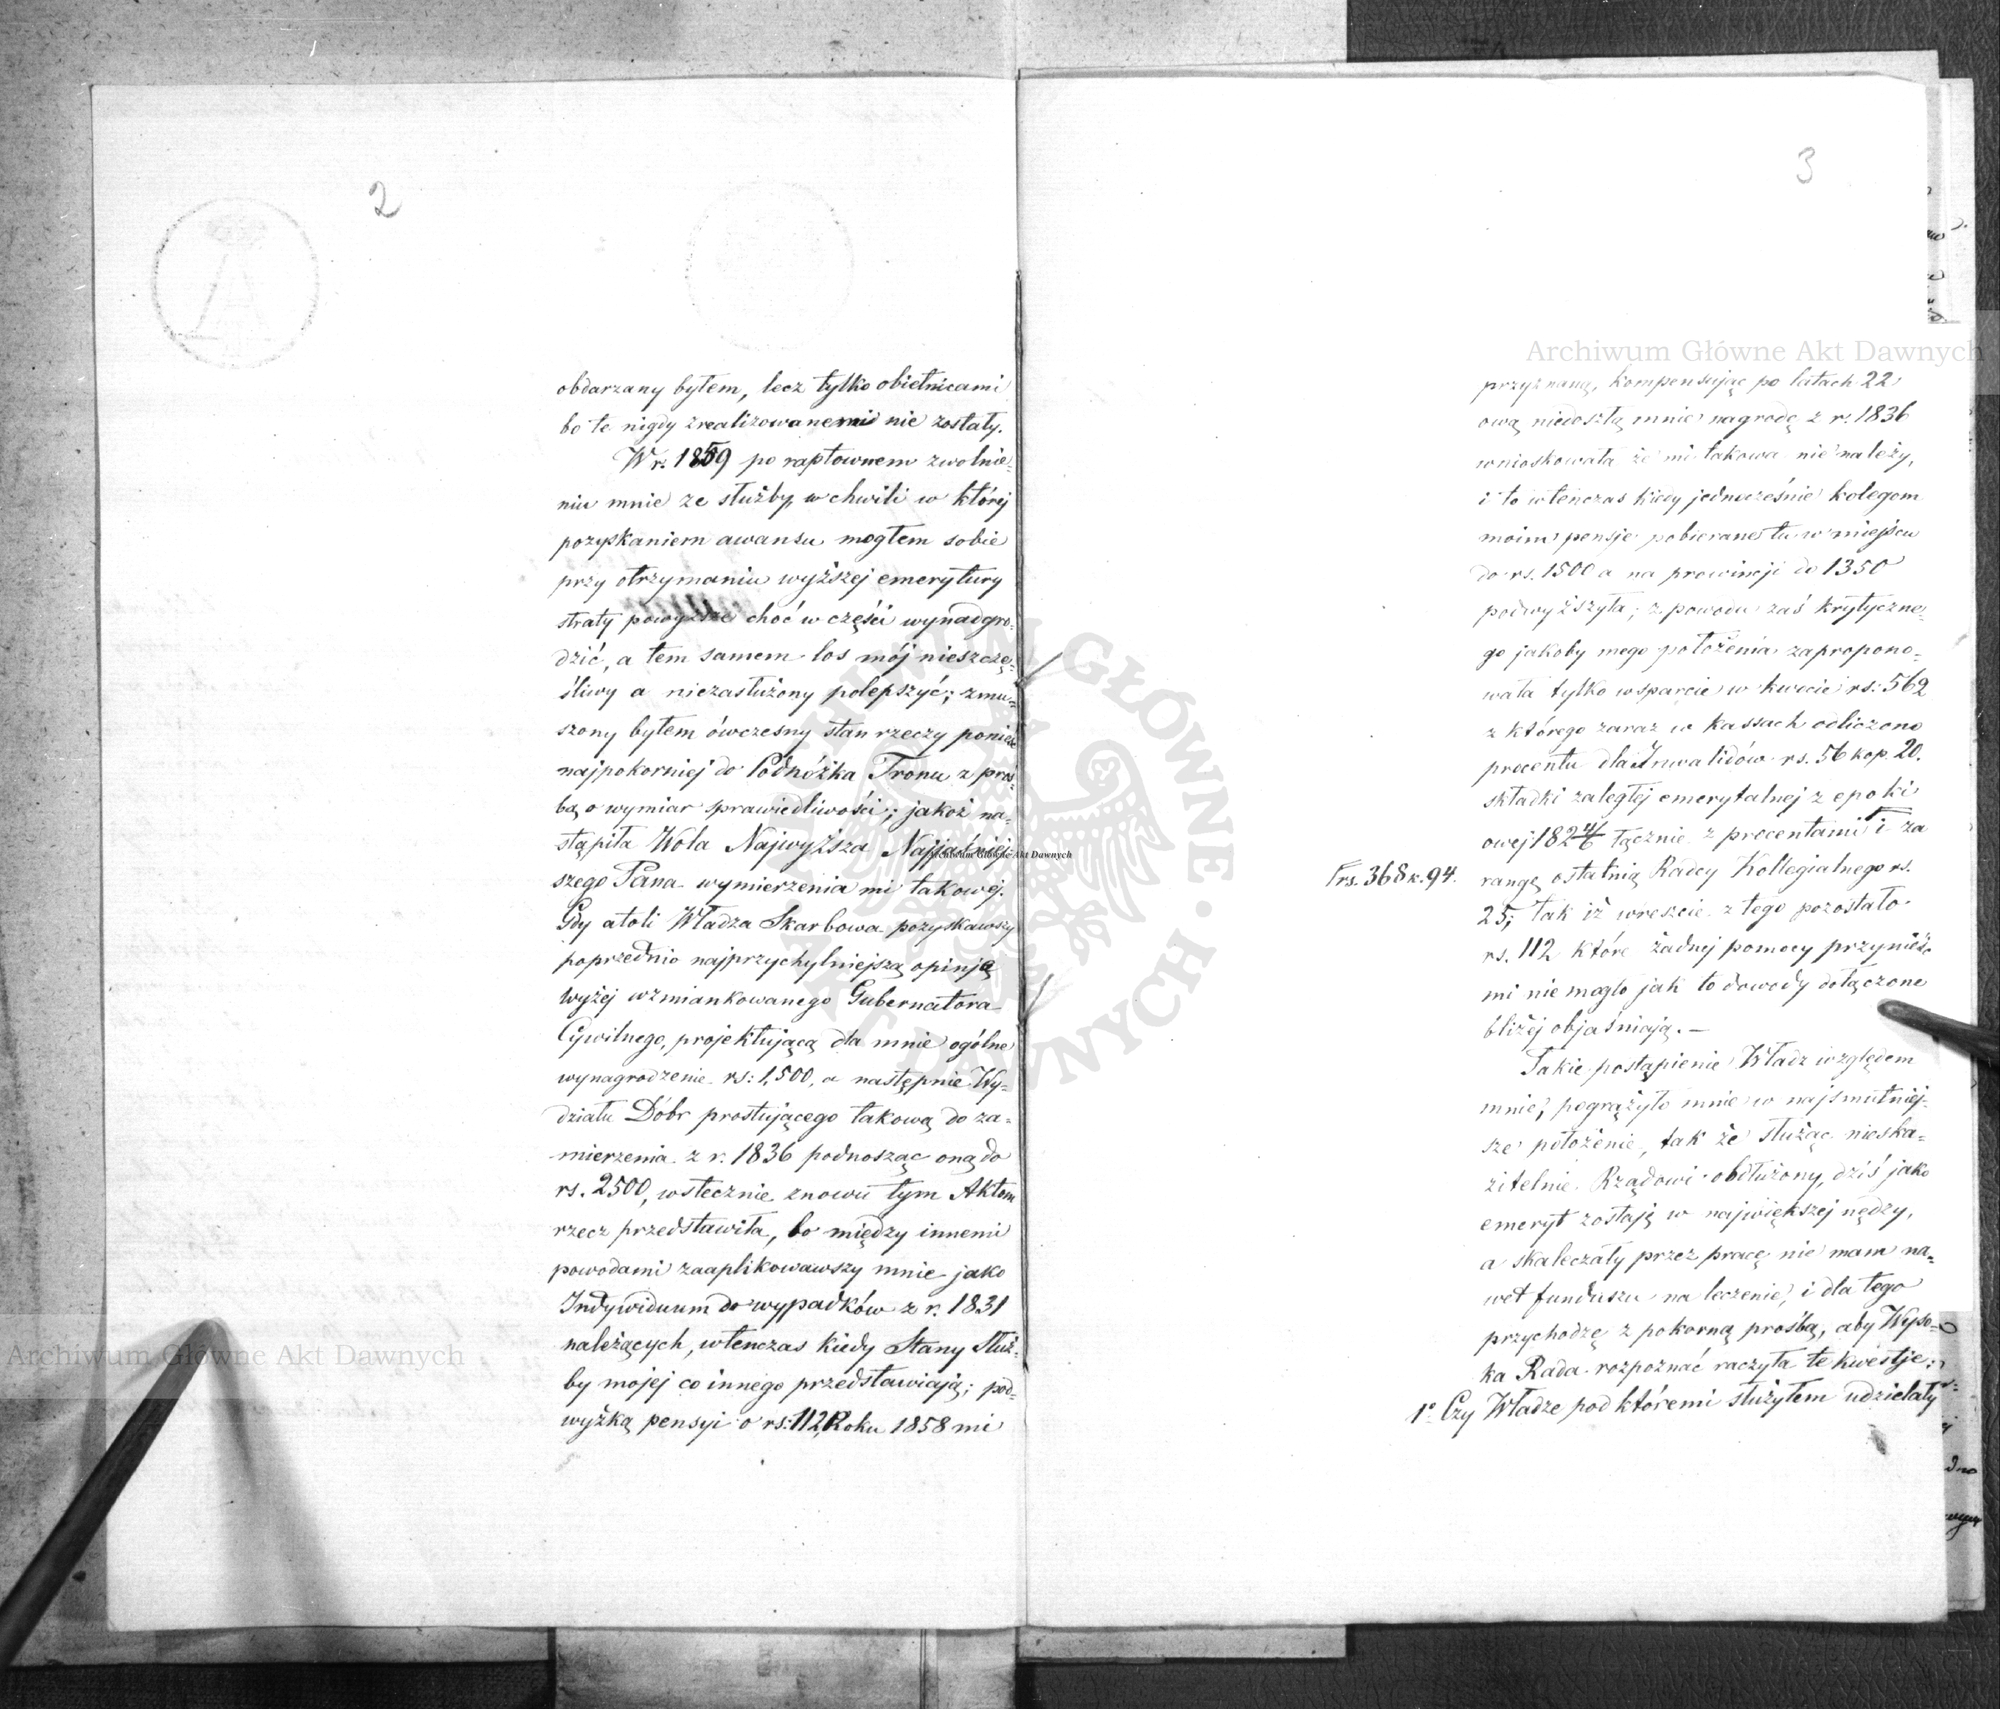 2
obdarzany byłem, lecz tylko obietnicami
bo te nigdy zrealizowanemi nie zostały.
W r. 1859 po raptownem zwolnie-
niu mnie ze służby, w chwili w której
pozyskaniem awansu mogłem sobie
przy otrzymaniu wyższej emerytury
straty powyższe choć w części wynadgro-
dzić, a tem samem los mój nieszczę-
śliwy a niezasłużony polepszyć; zmu-
szony byłem ówczesny stan rzeczy ponieść
najpokorniej do Podnóżka Tronu z proś-
bą o wymiar sprawiedliwości; jakoż na-
stąpiła Wola Najwyższa Najjaśniej-
szego Pana wymierzenia mi takowej.
Gdy atoli Władza Skarbowa pozyskawszy
poprzednio najprzychylniejszą opinję
wyżej wzmiankowanego Gubernatora
Cywilnego, projektującą dla mnie ogólne
wynagrodzenie rs: 1,500, a następnie Wy-
działu Dóbr prostującego takową do za-
mierzenia z r. 1836 podnosząc oną do
rs. 2500, wstecznie znowu tym Aktom
rzecz przedstawiła, bo między innemi
powodami zaaplikowawszy mnie jako
Indywiduum do wypadków z r. 1831
należących, wtenczas kiedy Stany Służ-
by mojej co innego przedstawiają; pod-
wyżką pensyi o rs: 112, Roku 1858 mi
3
przyznaną, kompensując po latach 22
ową niedoszłą mnie nagrodę z r. 1836
wnioskowała że mi takowa nie należy,
i to wtenczas kiedy jednocześnie kolegom
moim pensje pobierane tu w miejscu
do rs. 1500 a na prowincji do 1350
podwyższyła; z powodu zaś krytyczne-
go jakoby mego położenia zapropono-
wała tylko wsparcie w kwocie rs: 562
z którego zaraz w kassach odliczono
procentu dla Inwalidów rs. 56 kop. 20.
składki zaległej emerytalnej z epoki
owej 1824/6 łącznie z procentami i za
rs. 368 k. 94.
rangę ostatnią Radcy Kollegialnego rs.
25; tak iż wreszcie z tego pozostało
rs. 112 które żadnej pomocy przynieść
mi nie mogło jak to dowody dołączone
bliżej objaśniają. —
Takie postąpienie Władz względem
mnie, pogrążyło mnie w najsmutniej-
sze położenie, tak że służąc nieska-
zitelnie Rządowi obdłużony, dziś jako
emeryt zostaję w największej nędzy,
a skaleczały przez pracę nie mam na-
wet funduszu na leczenie, i dla tego
przychodzę z pokorną prośbą, aby Wyso-
ka Rada rozpoznać raczyła te kwestje:
1° Czy Władze pod któremi służyłem udzielały
Archiwum Główne Akt Dawnych
Archiwum Główne Akt Dawnych
Archiwum Główne Akt Dawnych
ARCHIWUM GŁÓWNE · AKT DAWNYCH ·